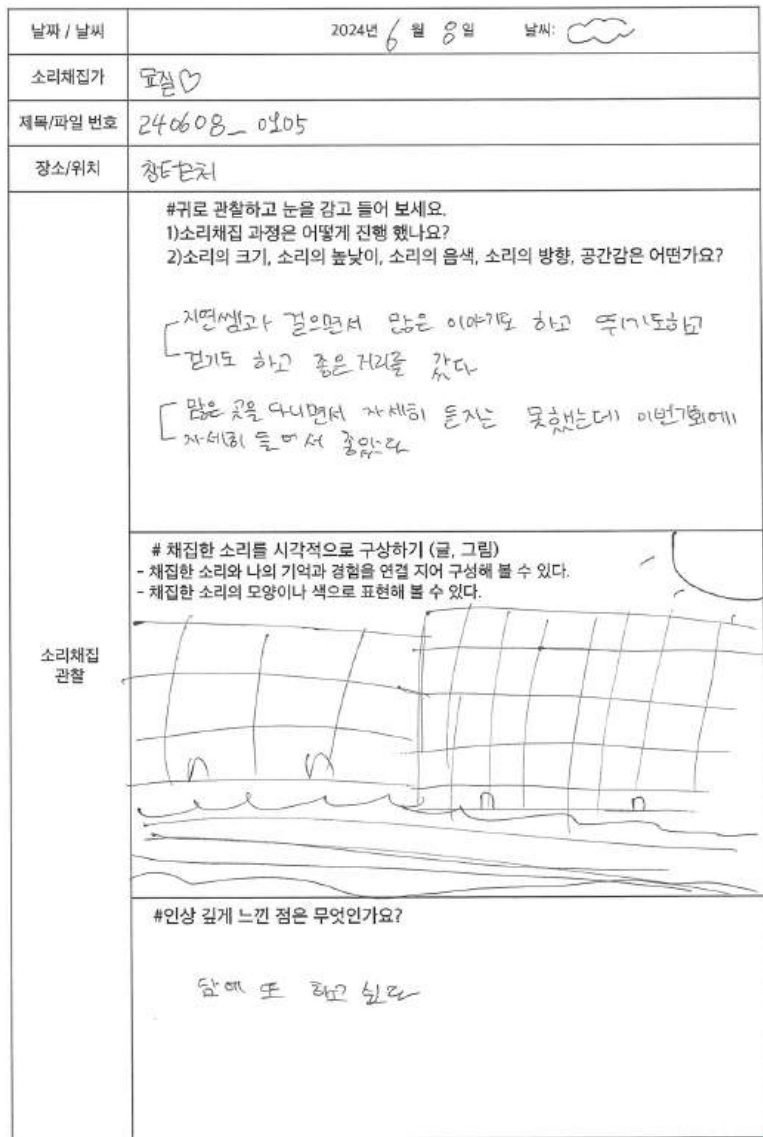 날짜 / 날씨 2024년 6 월 8 일 날씨:
소리채집가
제목/파일 번호 240608_ 0105
장소/위치
#귀로 관찰하고 눈을 감고 들어 보세요.
1)소리채집 과정은 어떻게 진행 했나요?
2)소리의 크기, 소리의 높낮이, 소리의 음색, 소리의 방향, 공간감은 어떤가요?
지연쌤과 걸으면서 많은 이야기도 하고 뛰기도하고
걷기도 하고 좋은 거리를 갔다
많은 곳을 다니면서 자세히 듣지는 못했는데 이번기회에
자세히 들어서 좋았다
# 채집한 소리를 시각적으로 구상하기 (글, 그림)
- 채집한 소리와 나의 기억과 경험을 연결 지어 구성해 볼 수 있다.
- 채집한 소리의 모양이나 색으로 표현해 볼 수 있다.
소리채집
관찰
#인상 깊게 느낀 점은 무엇인가요?
담에 또 하고 싶다